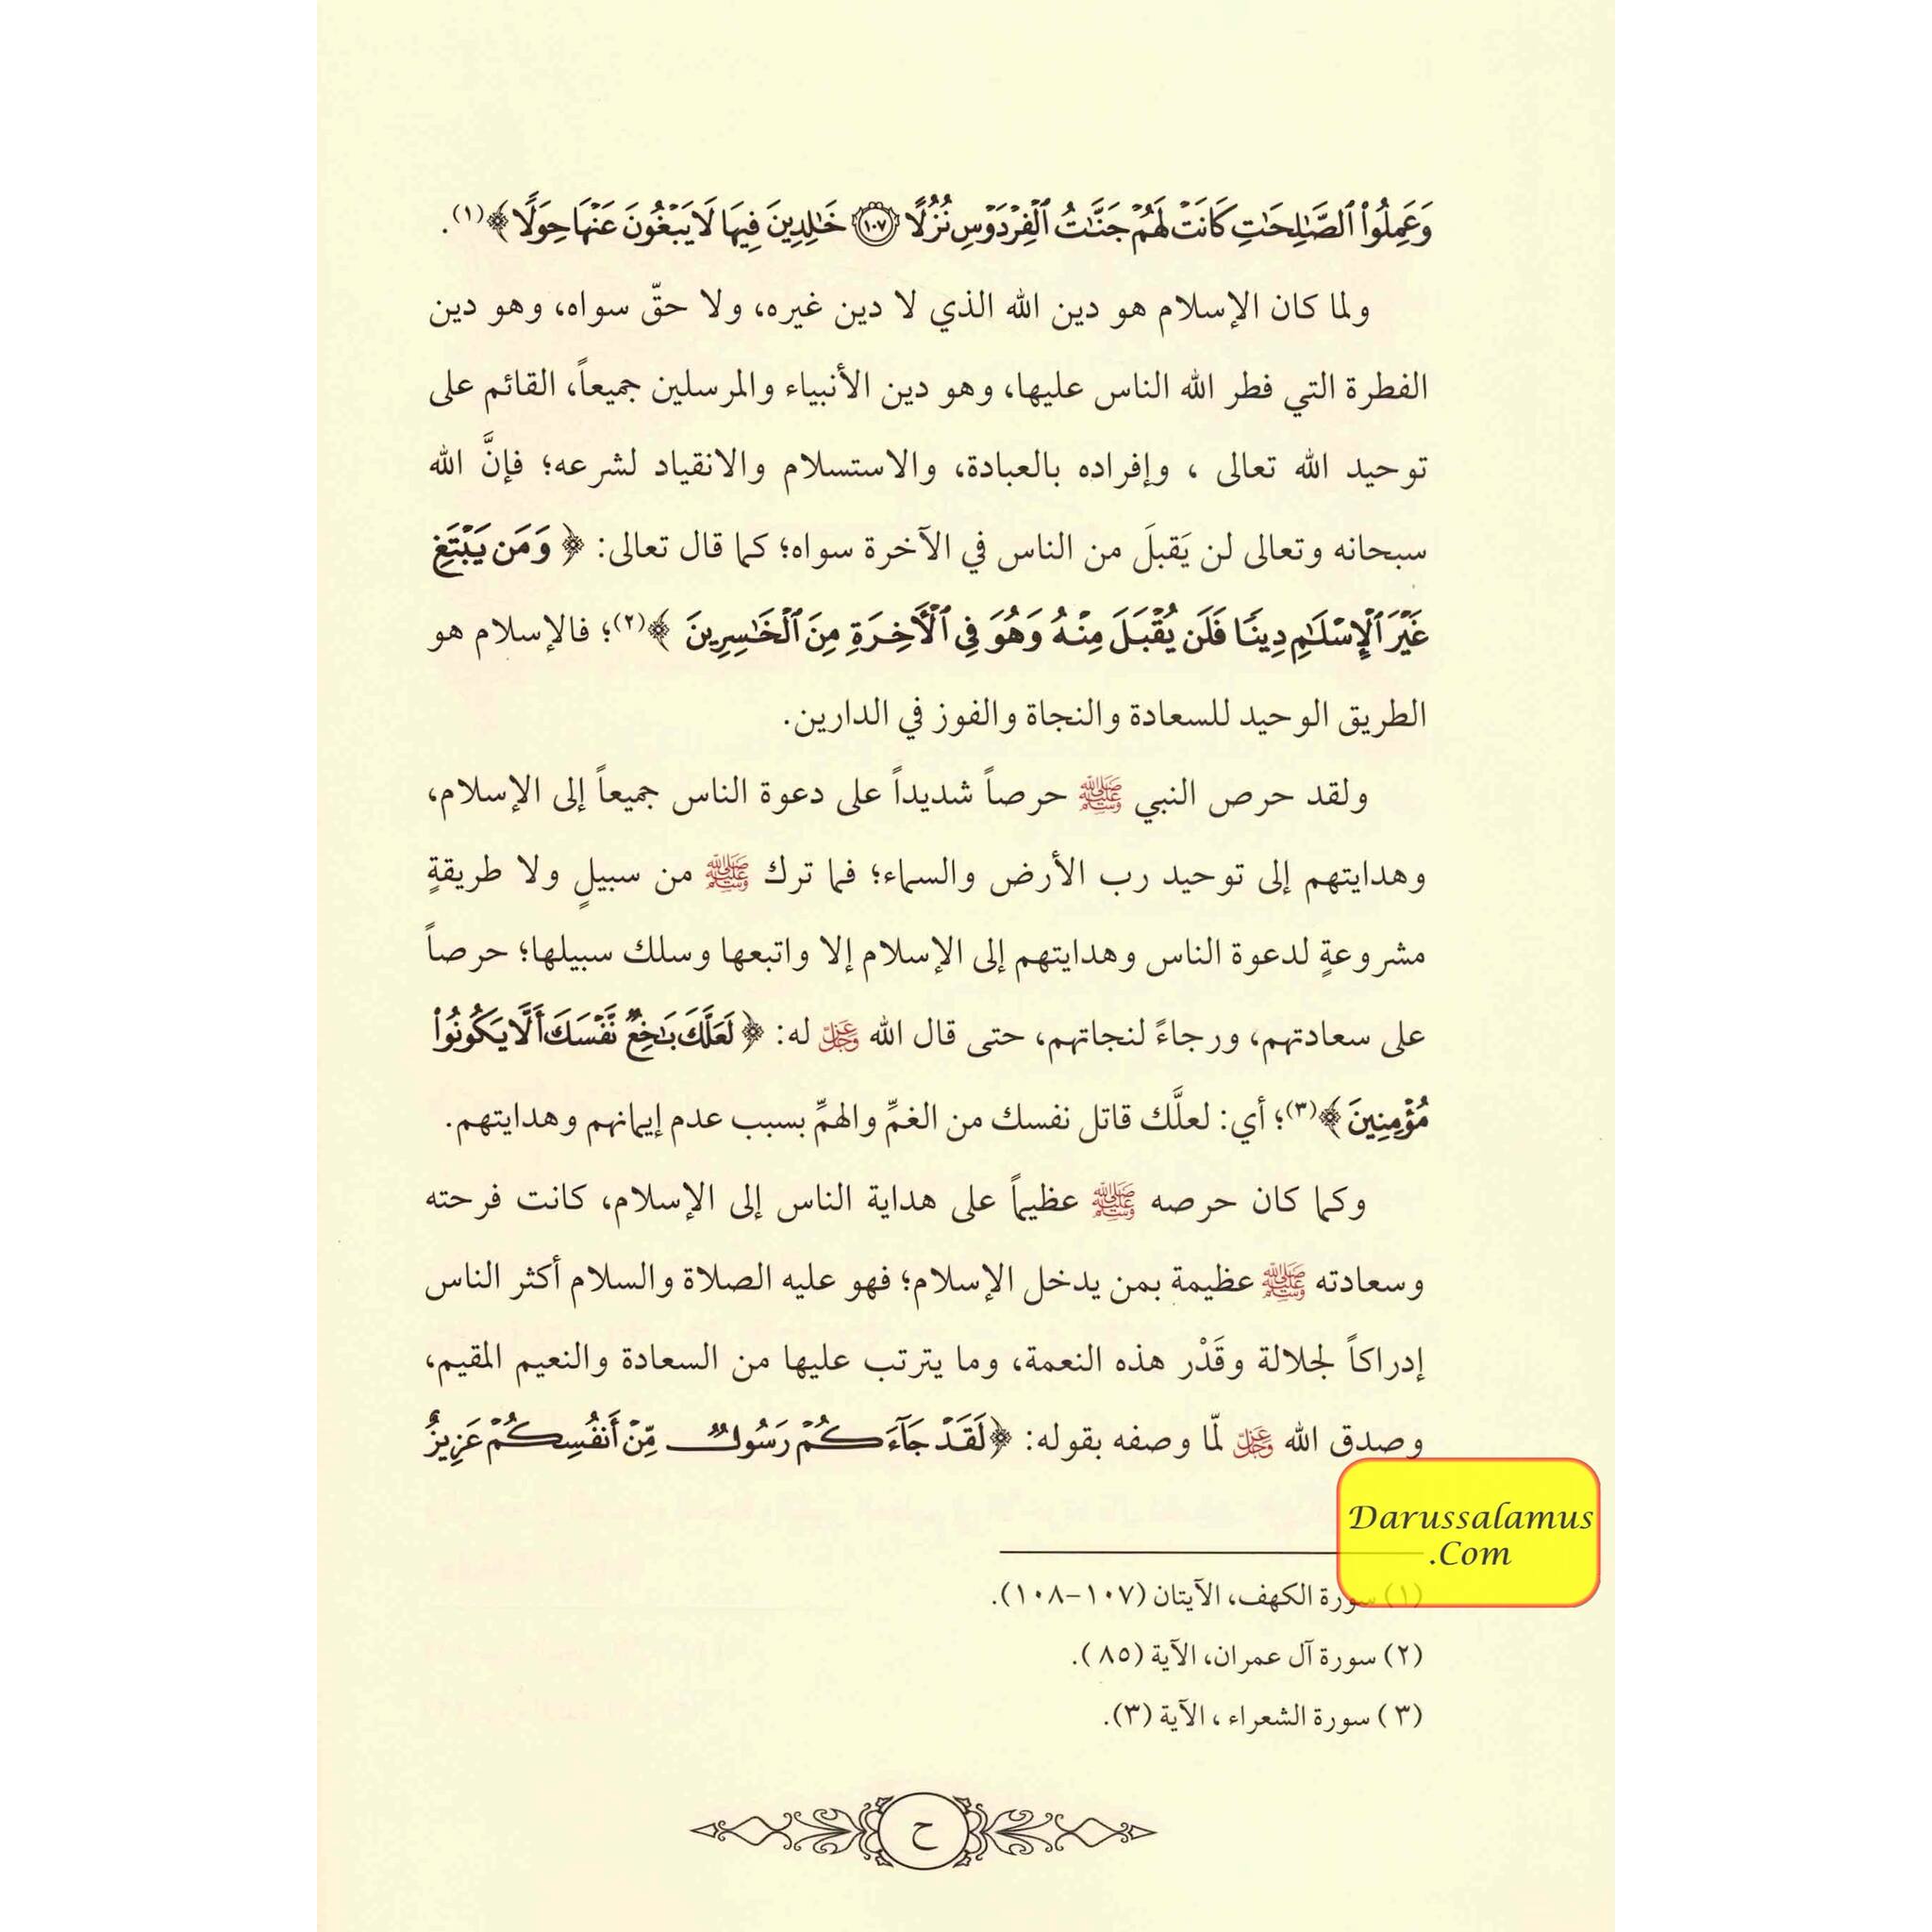 وَعَمِلُوا۟ ٱلصَّٰلِحَٰتِ كَانَتْ لَهُمْ جَنَّٰتُ ٱلْفِرْدَوْسِ نُزُلًا ١٠٧ خَٰلِدِينَ فِيهَا لَا يَبْغُونَ عَنْهَا حِوَلًا ﴾(١).
ولما كان الإسلام هو دين الله الذي لا دين غيره، ولا حقّ سواه، وهو دين
الفطرة التي فطر الله الناس عليها، وهو دين الأنبياء والمرسلين جميعاً، القائم على
توحيد الله تعالى ، وإفراده بالعبادة، والاستسلام والانقياد لشرعه؛ فإنَّ الله
سبحانه وتعالى لن يَقبلَ من الناس في الآخرة سواه؛ كما قال تعالى: ﴿ وَمَن يَبْتَغِ
غَيْرَ ٱلْإِسْلَٰمِ دِينًا فَلَن يُقْبَلَ مِنْهُ وَهُوَ فِى ٱلْأَخِرَةِ مِنَ ٱلْخَٰسِرِينَ ﴾(٢)؛ فالإسلام هو
الطريق الوحيد للسعادة والنجاة والفوز في الدارين.
ولقد حرص النبي ﷺ حرصاً شديداً على دعوة الناس جميعاً إلى الإسلام،
وهدايتهم إلى توحيد رب الأرض والسماء؛ فما ترك ﷺ من سبيلٍ ولا طريقةٍ
مشروعةٍ لدعوة الناس وهدايتهم إلى الإسلام إلا واتبعها وسلك سبيلها؛ حرصاً
على سعادتهم، ورجاءً لنجاتهم، حتى قال الله عَزَّ وَجَلَّ له: ﴿ لَعَلَّكَ بَٰخِعٌ نَّفْسَكَ أَلَّا يَكُونُوا۟
مُؤْمِنِينَ ﴾(٣)؛ أي: لعلَّك قاتل نفسك من الغمِّ والهمِّ بسبب عدم إيمانهم وهدايتهم.
وكما كان حرصه ﷺ عظيماً على هداية الناس إلى الإسلام، كانت فرحته
وسعادته ﷺ عظيمة بمن يدخل الإسلام؛ فهو عليه الصلاة والسلام أكثر الناس
إدراكاً لجلالة وقَدْر هذه النعمة، وما يترتب عليها من السعادة والنعيم المقيم،
وصدق الله عَزَّ وَجَلَّ لمّا وصفه بقوله: ﴿ لَقَدْ جَآءَكُمْ رَسُولٌ مِّنْ أَنفُسِكُمْ عَزِيزٌ
Darussalamus
.Com
(١) سورة الكهف، الآيتان (١٠٧-١٠٨).
(٢) سورة آل عمران، الآية (٨٥).
(٣) سورة الشعراء ، الآية (٣).
ح